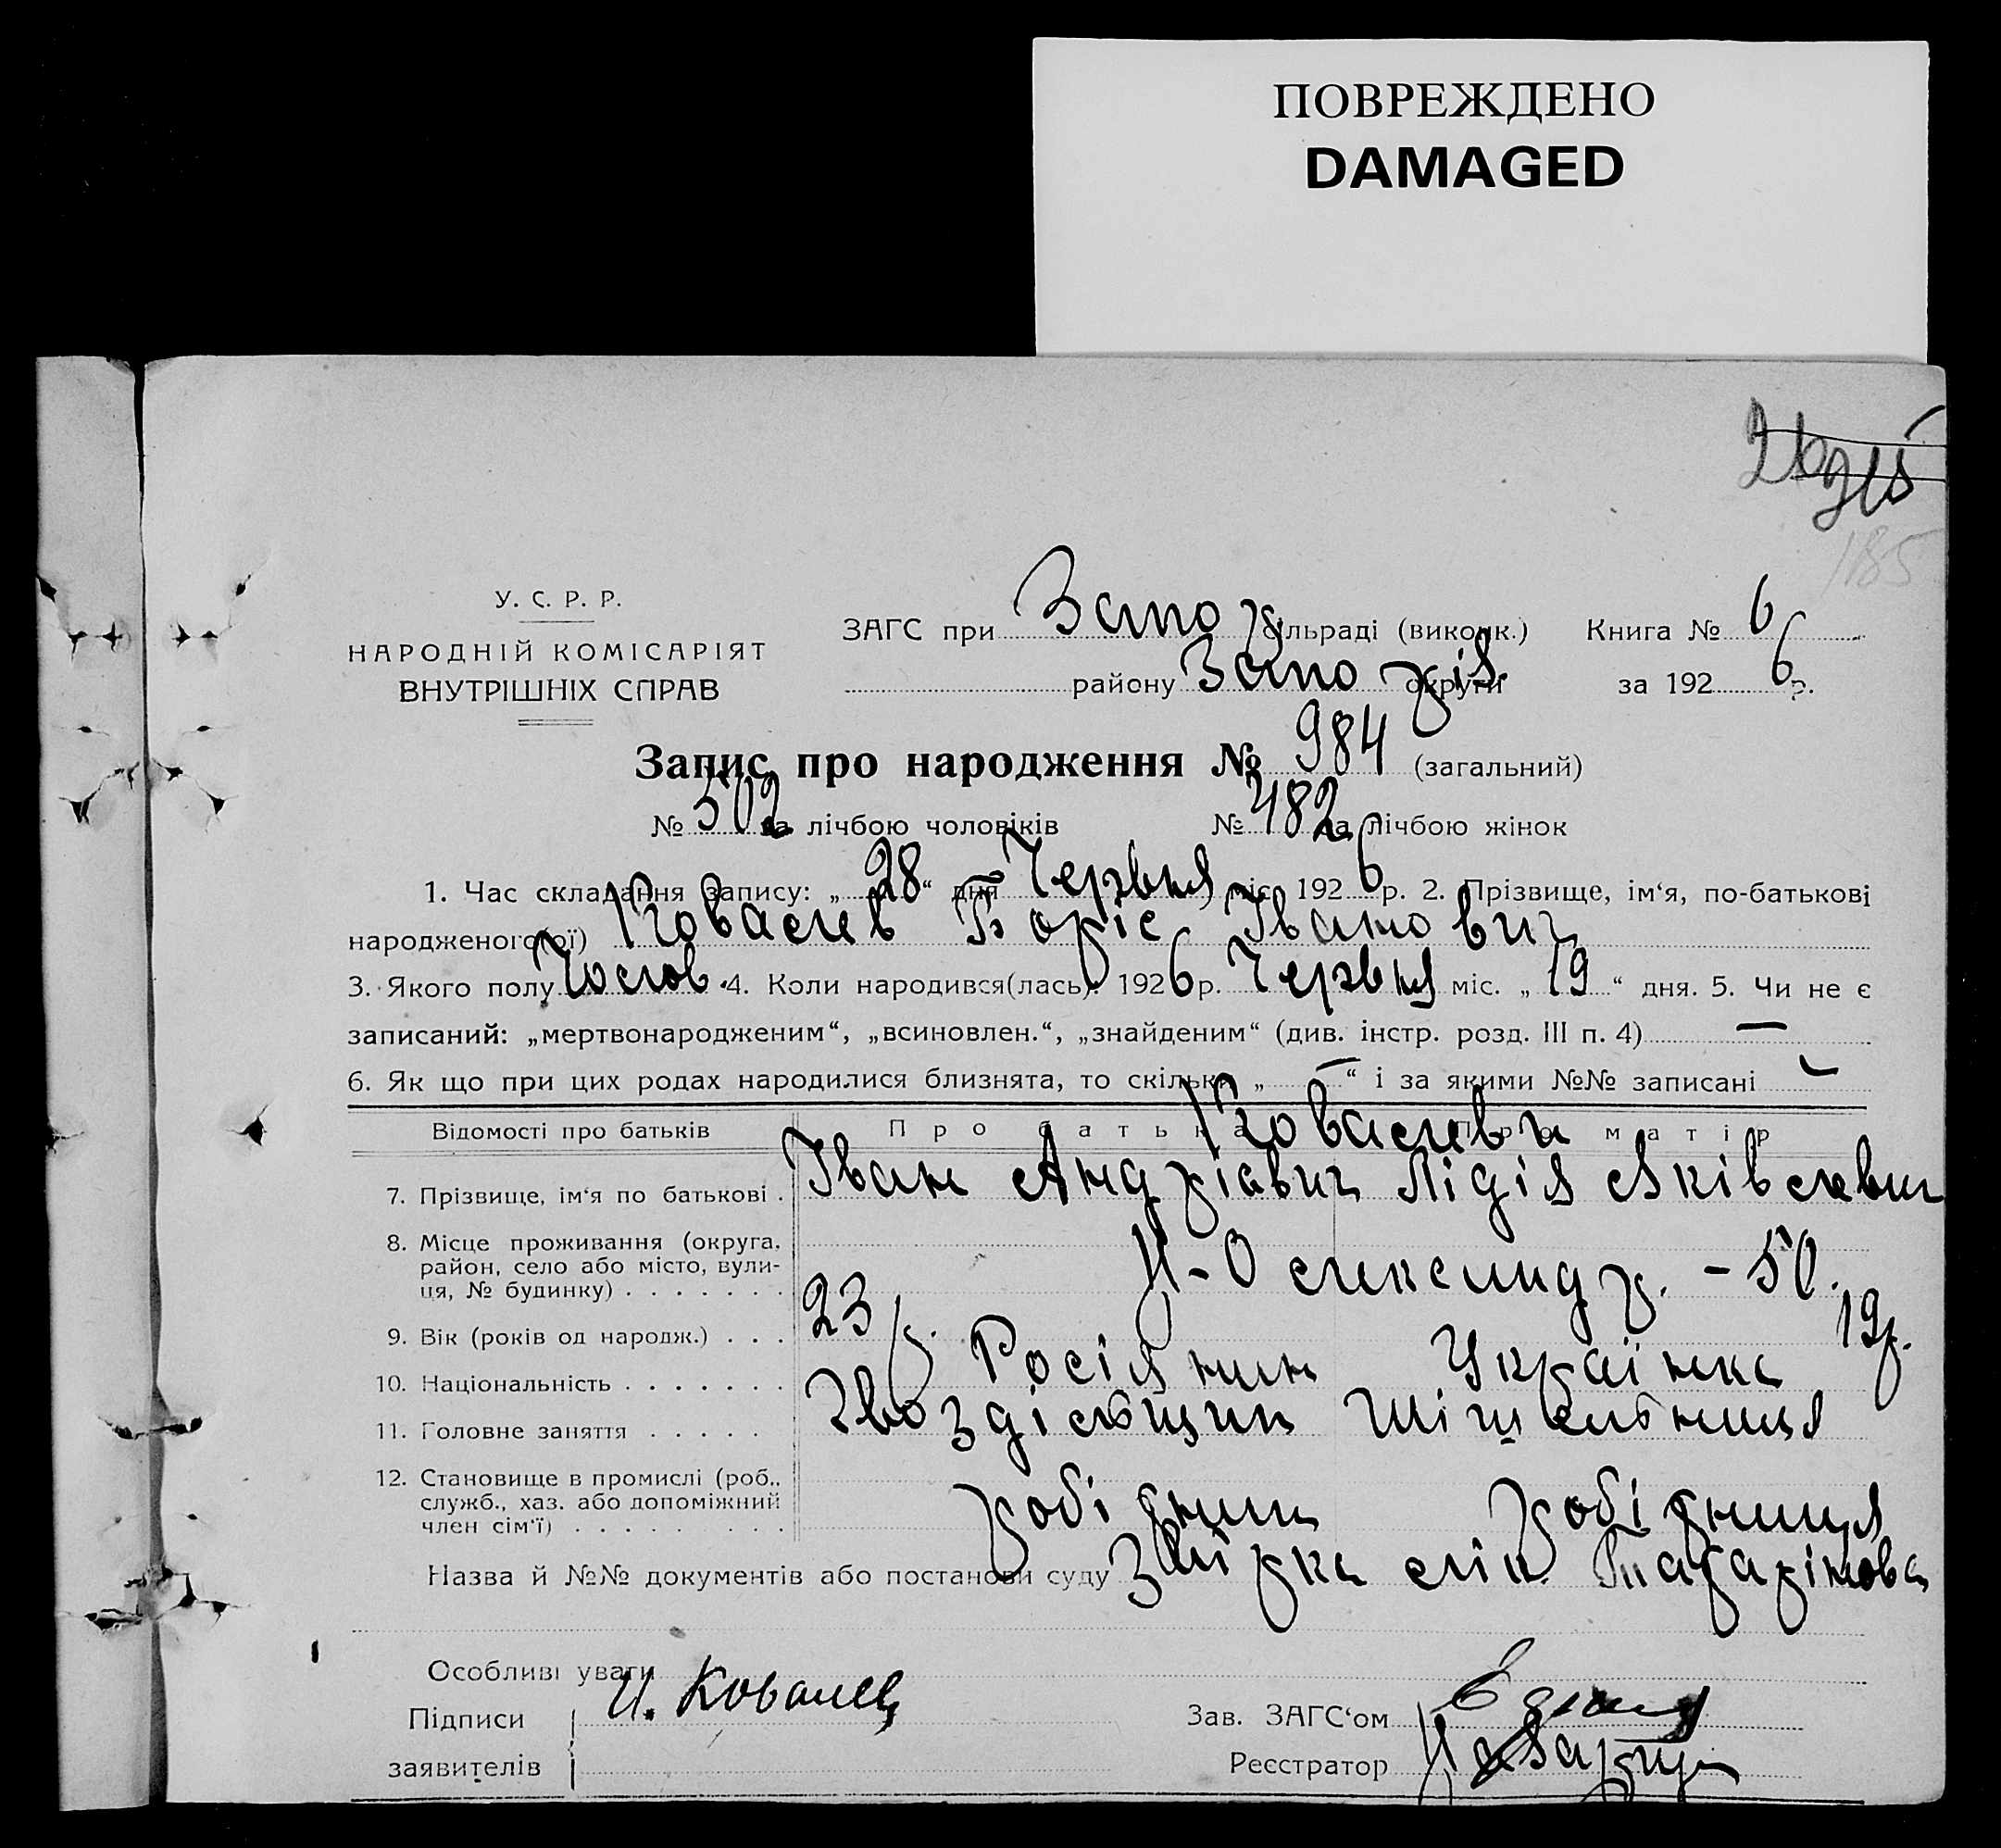 ПОВРЕЖДЕНО
DAMAGED
185
У. С. Р. Р.
НАРОДНІЙ КОМІСАРІЯТ
ВНУТРІШНІХ СПРАВ
ЗАГС при Запоріз сільраді (виконк.) Книга № 6
району Запоріз округи за 1926 р.
Запис про народження № 984 (загальний)
№ 502 за лічбою чоловіків № 482 за лічбою жінок
1. Час складання запису: „28“ дня Червня міс. 1926 р. 2. Прізвище, ім‘я, по-батькові
народженого(ої) Ковалев Боріс Іванович
3. Якого полу Чолов. 4. Коли народився(лась): 1926 р. Червня міс. „19“ дня. 5. Чи не є
записаний: „мертвонародженим“, „всиновлен.“, „знайденим“ (див. інстр. розд. III п. 4) —
6. Як що при цих родах народилися близнята, то скільки „—“ і за якими №№ записані —
Відомості про батьків Про батька Про матір
Ковалеви
7. Прізвище, ім‘я по батькові . Іван Андріавич Лідія Яківлевич
8. Місце проживання (округа, район, село або місто, вулиця, № будинку) . . . . . . . Н-Олександр. - 50.
9. Вік (років од народж.) . . . 23 р. 19 р.
10. Національність . . . . . . . Росіянин Українка
11. Головне заняття . . . . . Гвоздільщик Шішельниця
12. Становище в промислі (роб., служб., хаз. або допоміжний член сім‘ї) . . . . . . . . . робітник робітниця
Назва й №№ документів або постанови суду лік.
Особливі уваги
Підписи И. Ковалев Зав. ЗАГС‘ом
заявителів Реєстратор